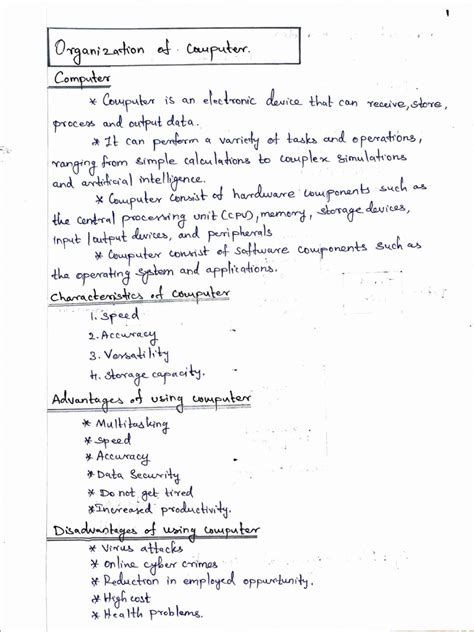 1
Organization of Computer.
Computer
* Computer is an electronic device that can receive, store,
process and output data.
* It can perform a variety of tasks and operations,
ranging from simple calculations to complex simulations
and artificial intelligence.
* Computer consist of hardware components such as
the central processing unit (CPU), memory, storage devices,
input/output devices, and peripherals
* Computer consist of software components such as
the operating system and applications.
Characteristics of computer
1. Speed
2. Accuracy
3. Versatility
4. Storage capacity.
Advantages of using computer
* Multitasking
* Speed
* Accuracy
* Data Security
* Do not get tired
* Increased productivity.
Disadvantages of using computer
* Virus attacks
* Online cyber crimes
* Reduction in employed oppurtunity.
* High cost
* Health problems.